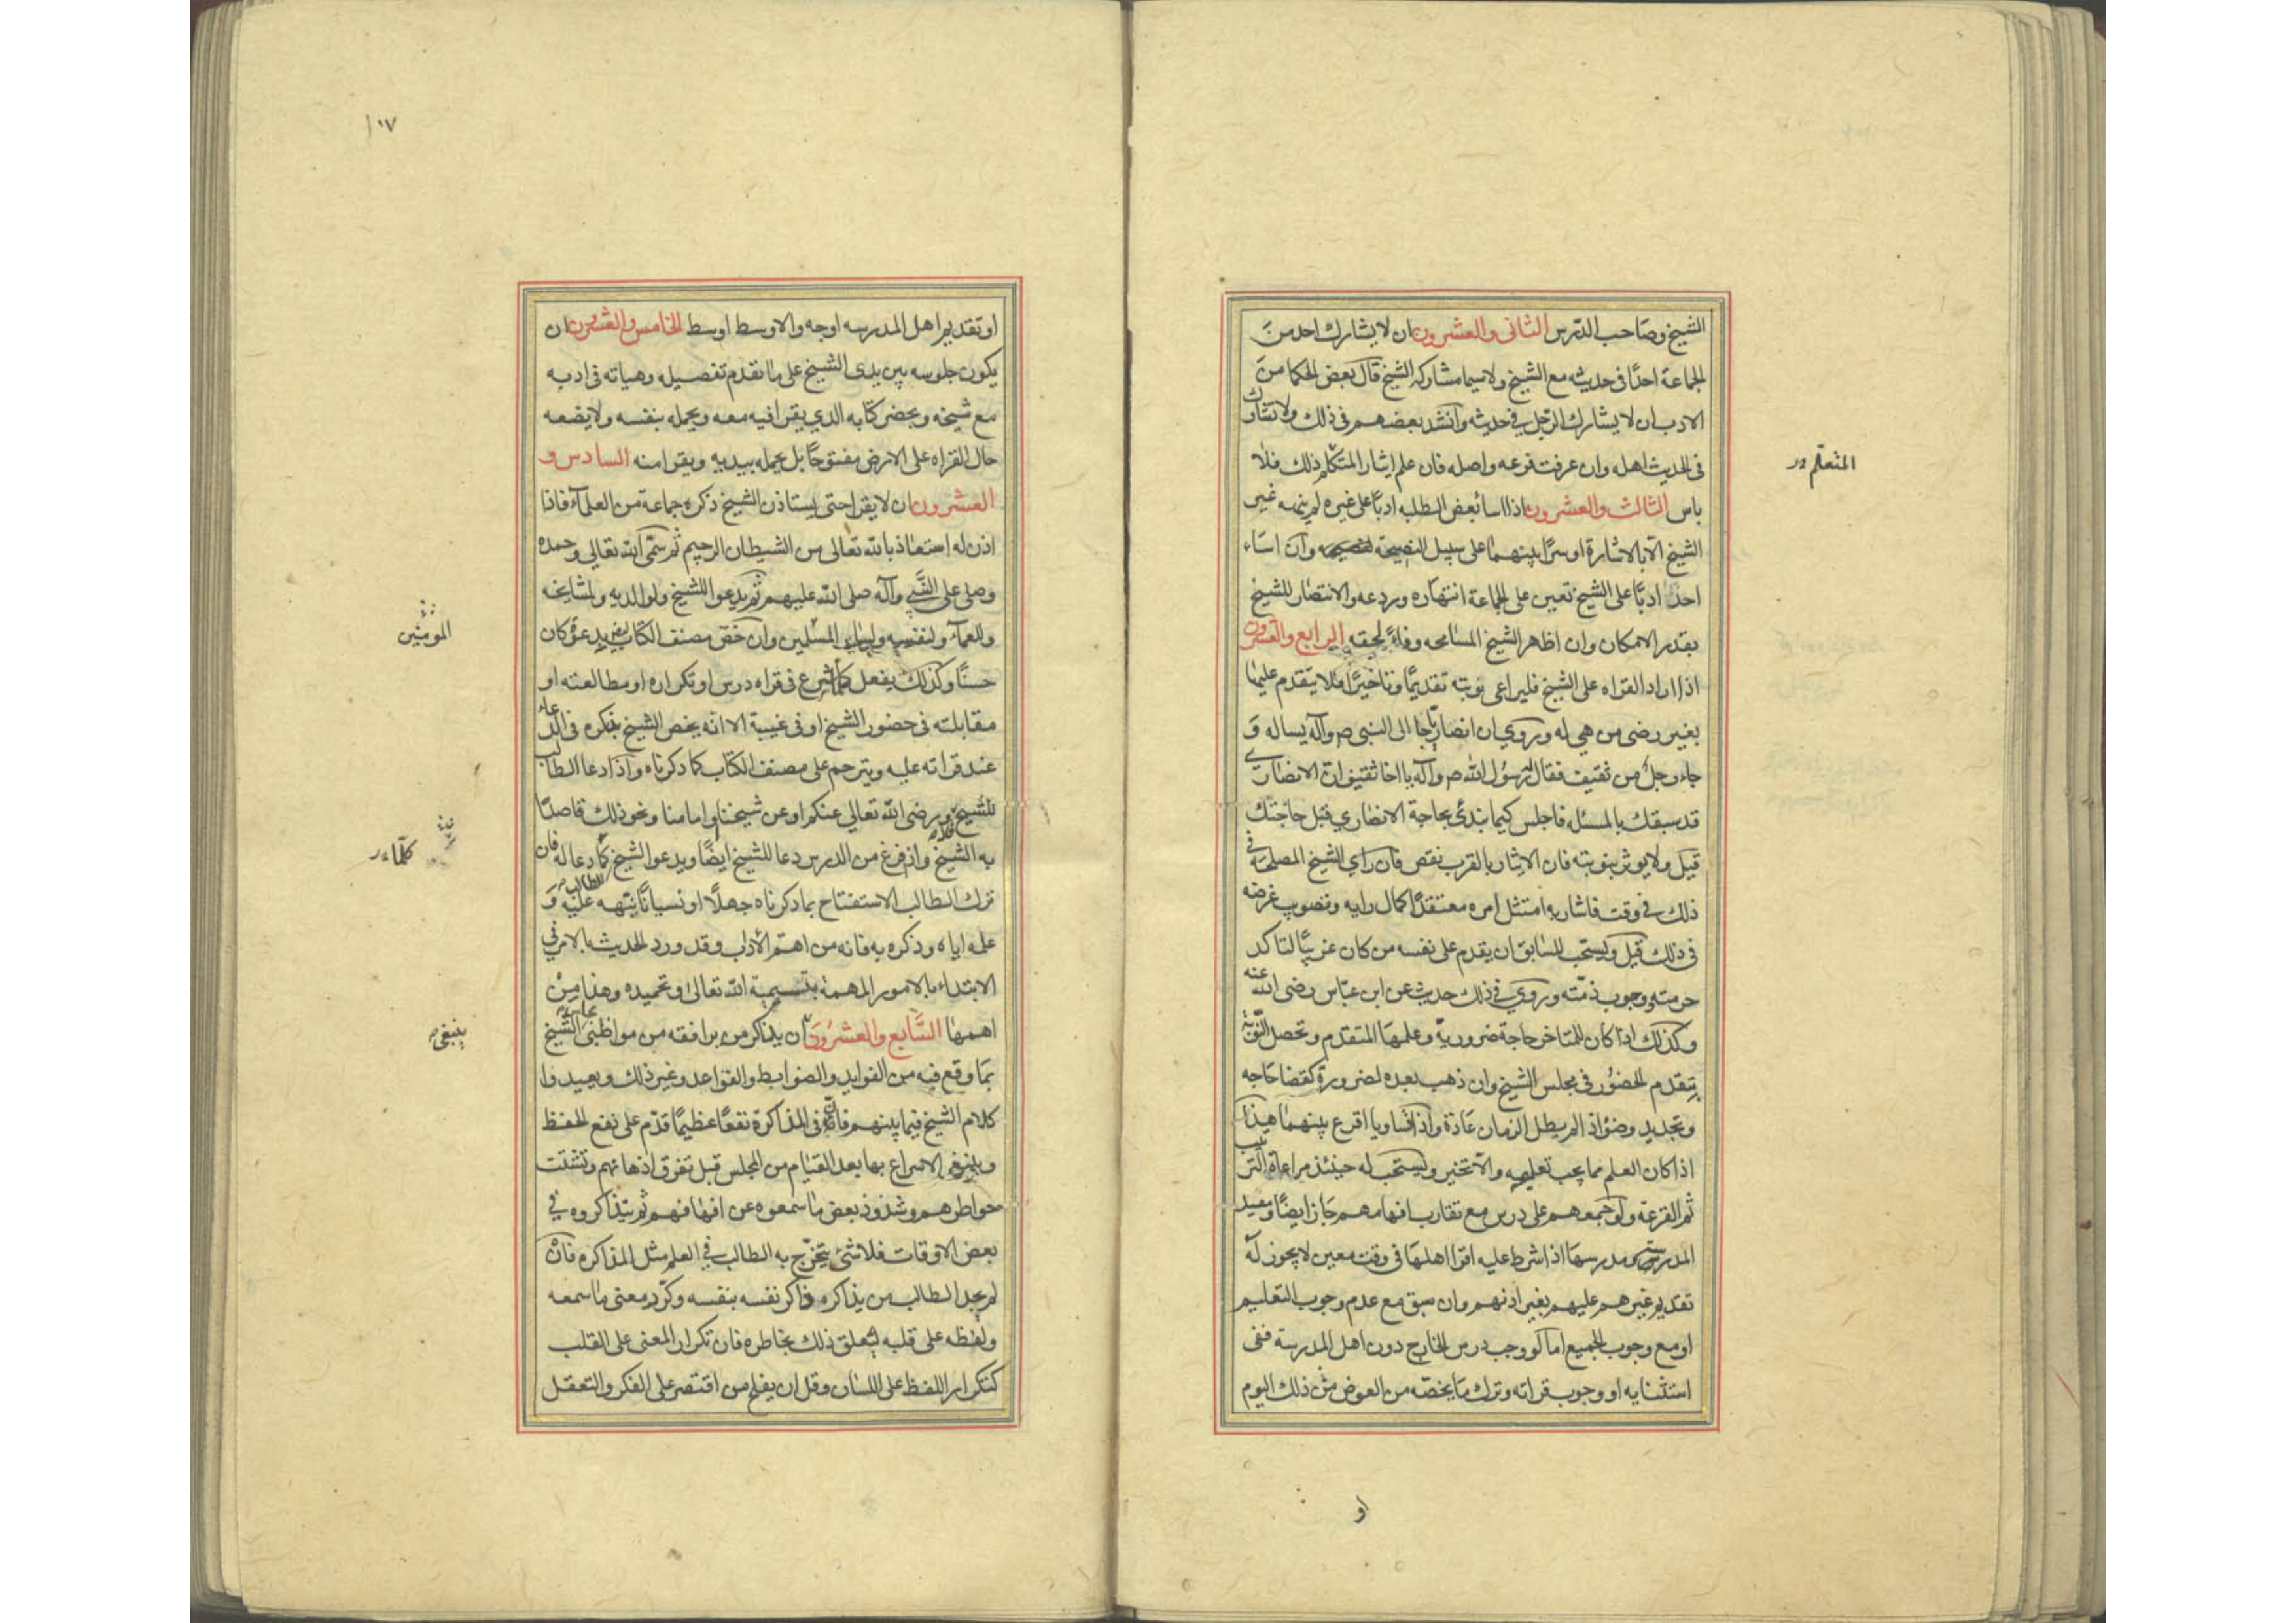 الشيخ وصاحب الدرس الثاني والعشرون ان لا يشارك احد من
الجماعة احدًا في حديثه مع الشيخ ولا سيما مشاركه الشيخ قال بعض الحكما من
الادب ان لا يشارك الرجل في حديثه وانشد بعضهم في ذلك ولا تشارك
في الحديث اهله وان عرفت فرعه واصله فان علم ايثار المتكلم ذلك فلا
المتعلم
باس الثالث والعشرون اذا اسا بعض الطلبه ادبًا على غيره لم ينهه غير
الشيخ الا بالاشارة او سرًا بينهما على سبيل النصيحة وان اساء
احد ادبًا على الشيخ تعين على الجماعة انتهاره وردعه والانتصار للشيخ
بقدر الامكان وان اظهر الشيخ المسامحه وفاءً لحقه الرابع والعشرون
اذا اراد القراه على الشيخ فليراعي نوبته تقديمًا وتاخيرًا فلا يتقدم عليها
بغير رضى من هي له وروي ان انصاريًا جا الى النبي ص وآله يساله و
جاء رجل من ثقيف فقال رسول الله ص وآله يا اخا ثقيف ان الانصاري
قد سبقك بالمسئله فاجلس كيما نبدئ بحاجة الانصاري قبل حاجتك
قيل ولا يوثر بنوبته فان الايثار بالقرب نقص فان راي الشيخ المصلحة في
ذلك في وقت فاشار به امتثل امره معتقدًا كمال رايه وتصويب غرضه
في ذلك قيل ويستحب للسابق ان يقدم على نفسه من كان غريبًا لتاكد
حرمته ووجوب ذمته وروي في ذلك حديث عن ابن عباس رضى الله عنه
وكذلك اذا كان للمتاخر حاجة ضرورية وعلمها المتقدم وتحصل النوبة
بتقدم الحضور في مجلس الشيخ وان ذهب بعده لضرورة كقضا حاجه
وتجديد وضؤ اذا لم يطل الزمان عادة واذا تساويا اقرع بينهما هذا
اذا كان العلم مما يجب تعليمه والا تخير ويستحب له حينئذ مراعاة الترتيب
ثم القرعة ولو جمعهم على درس مع تقارب افهامهم جاز ايضًا ومعيد
المدرسة ومدرسها اذا شرط عليه اقرا اهلها في وقت معين لا يجوز له
تقديم غيرهم عليهم بغير اذنهم وان سبق مع عدم وجوب التعليم
او مع وجوب الجميع اما لو وجب درس الخارج دون اهل المدرسة ففى
استثنايه او وجوب قراته وترك ما يخصه من العوض من ذلك اليوم
او
١٠٧
او تقديم اهل المدرسه اوجه والاوسط اوسط الخامس والعشرون ان
يكون جلوسه بين يدى الشيخ على ما تقدم تفصيله وهياته في ادبه
مع شيخه ويحضر كتابه الذي يقرا فيه معه ويحمله بنفسه ولا يضعه
حال القراه على الارض مفتوحًا بل يحمله بيديه ويقرا منه السادس و
العشرون ان لا يقرا حتى يستاذن الشيخ ذكره جماعة من العلمآء فاذا
اذن له استعاذ بالله تعالى من الشيطان الرجيم ثم سمى الله تعالى وحمده
وصلى على النبي وآله صلى الله عليهم ثم يدعوا للشيخ ولوالديه ولمشايخه
وللعلماء ولنفسه ولساير المسلمين وان خص مصنف الكتاب بمزيد دعوة كان
المومنين
حسنًا وكذلك يفعل كلما شرع في قراه درس او تكراره او مطالعته او
مقابلته في حضور الشيخ او في غيبة الا انه يخص الشيخ بذكره في الدعاء
عند قراته عليه ويترحم على مصنف الكتاب كما ذكرناه واذا دعا الطالب
للشيخ ورضى الله تعالى عنكم او عن شيخنا وامامنا ونحو ذلك قاصدًا
به الشيخ واذا فرغ من الدرس دعا للشيخ ايضًا ويدعو الشيخ كما دعا له فان
كلما
ترك الطالب الاستفتاح بما ذكرناه جهلًا او نسيانًا نبهه عليه و
علمه اياه وذكره به فانه من اهم الآداب وقد ورد الحديث بالامر في
الابتداء بالامور المهمة بتسمية الله تعالى وتحميده وهذا من
اهمها السابع والعشرون ان يذاكر من يرافقه من مواظبي مجلس الشيخ
ينبغي
بما وقع فيه من الفوايد والضوابط والقواعد وغير ذلك ويعيدوا
كلام الشيخ فيما بينهم فان في المذاكرة نفعًا عظيمًا قدم على نفع الحفظ
وينبغي الاسراع بها بعد القيام من المجلس قبل تفرق اذهانهم وتشتت
خواطرهم وشذوذ بعض ما سمعوه عن افهامهم ثم يتذاكروه في
بعض الاوقات فلا شئ يتخرج به الطالب في العلم مثل المذاكره فان
لم يجد الطالب من يذاكره ذاكر نفسه بنفسه وكرر معنى ما سمعه
ولفظه على قلبه ليعلق ذلك بخاطره فان تكرار المعنى على القلب
كتكرار اللفظ على اللسان وقل ان يفلح من اقتصر على الفكر والتعقل